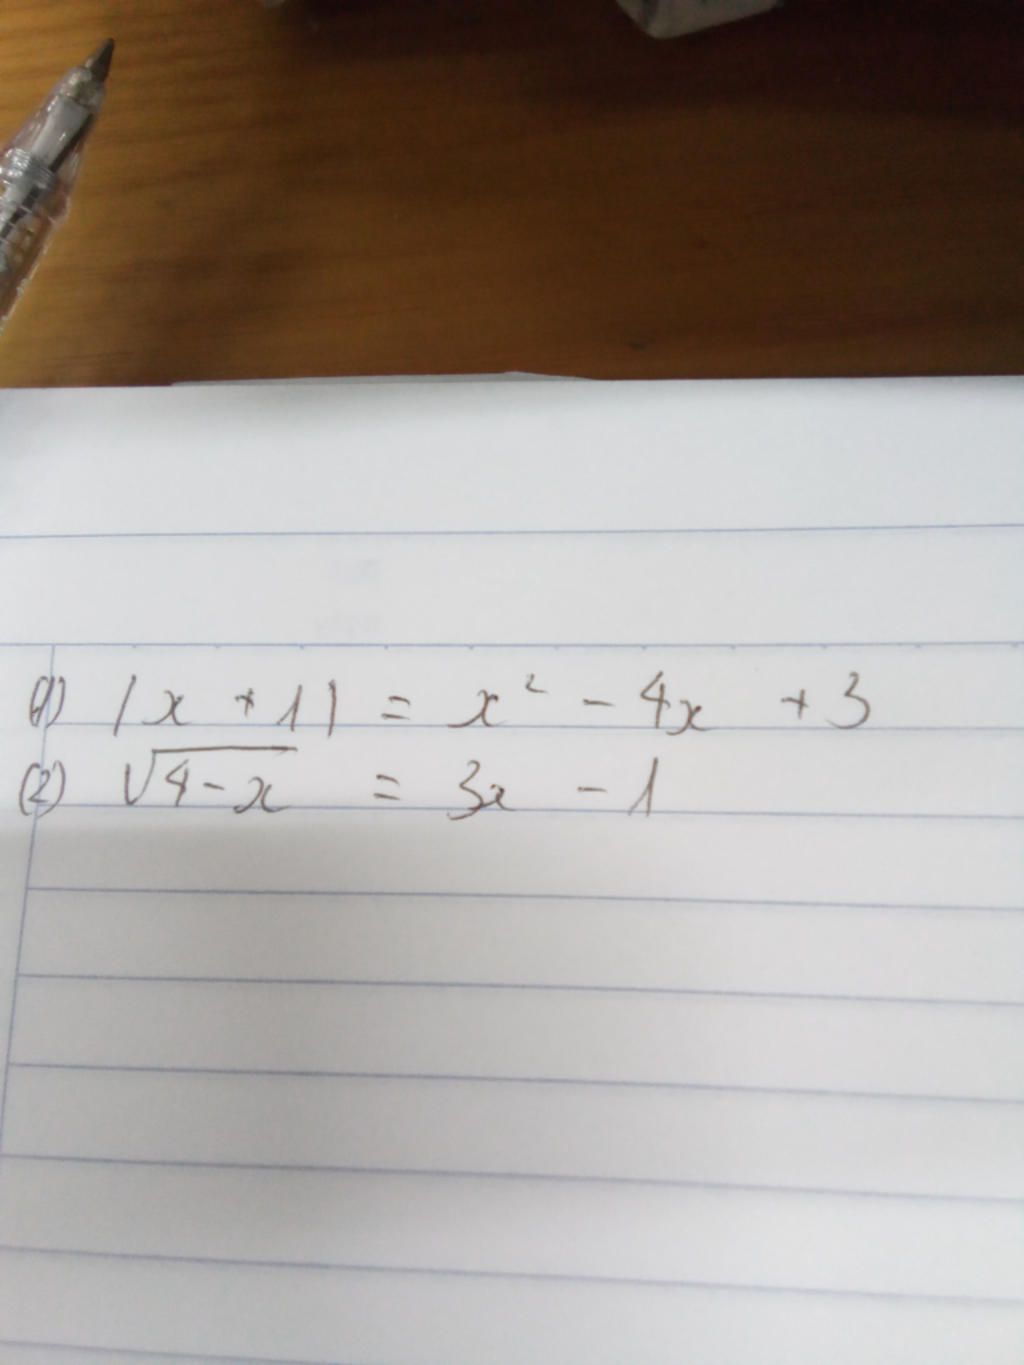 (1) |x + 1| = x² - 4x + 3
(2) √(4-x) = 3x - 1